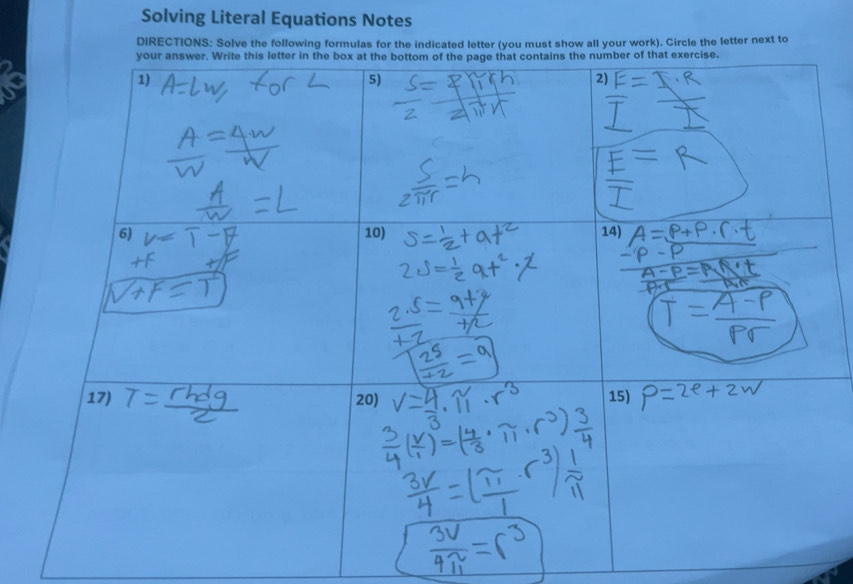 Solving Literal Equations Notes
DIRECTIONS: Solve the following formulas for the indicated letter (you must show all your work). Circle the letter next to
your answer. Write this letter in the box at the bottom of the page that contains the number of that exercise.
1) A=LW, for L
A/W = LW/W
A/W = L
5) S/2 = 2πrh/2πr
S/2πr = h
2) E/I = I·R/I
E/I = R
6) V= T-F
+F +F
V+F=T
10) S=1/2+at²
2S=1/2 at²·2
2·S/t2 = at2/t2
2S/t2 = a
14) A=P+P·r·t
-P -P
A-P/P·r = P·r·t/P·r
T = A-P/Pr
17) T = rhdg/2
20) V=4/3·π·r³
3/4(V/1)=(4/3·π·r³)3/4
3V/4=(π/1·r³)1/π
3V/4π=r³
15) P=2e+2w